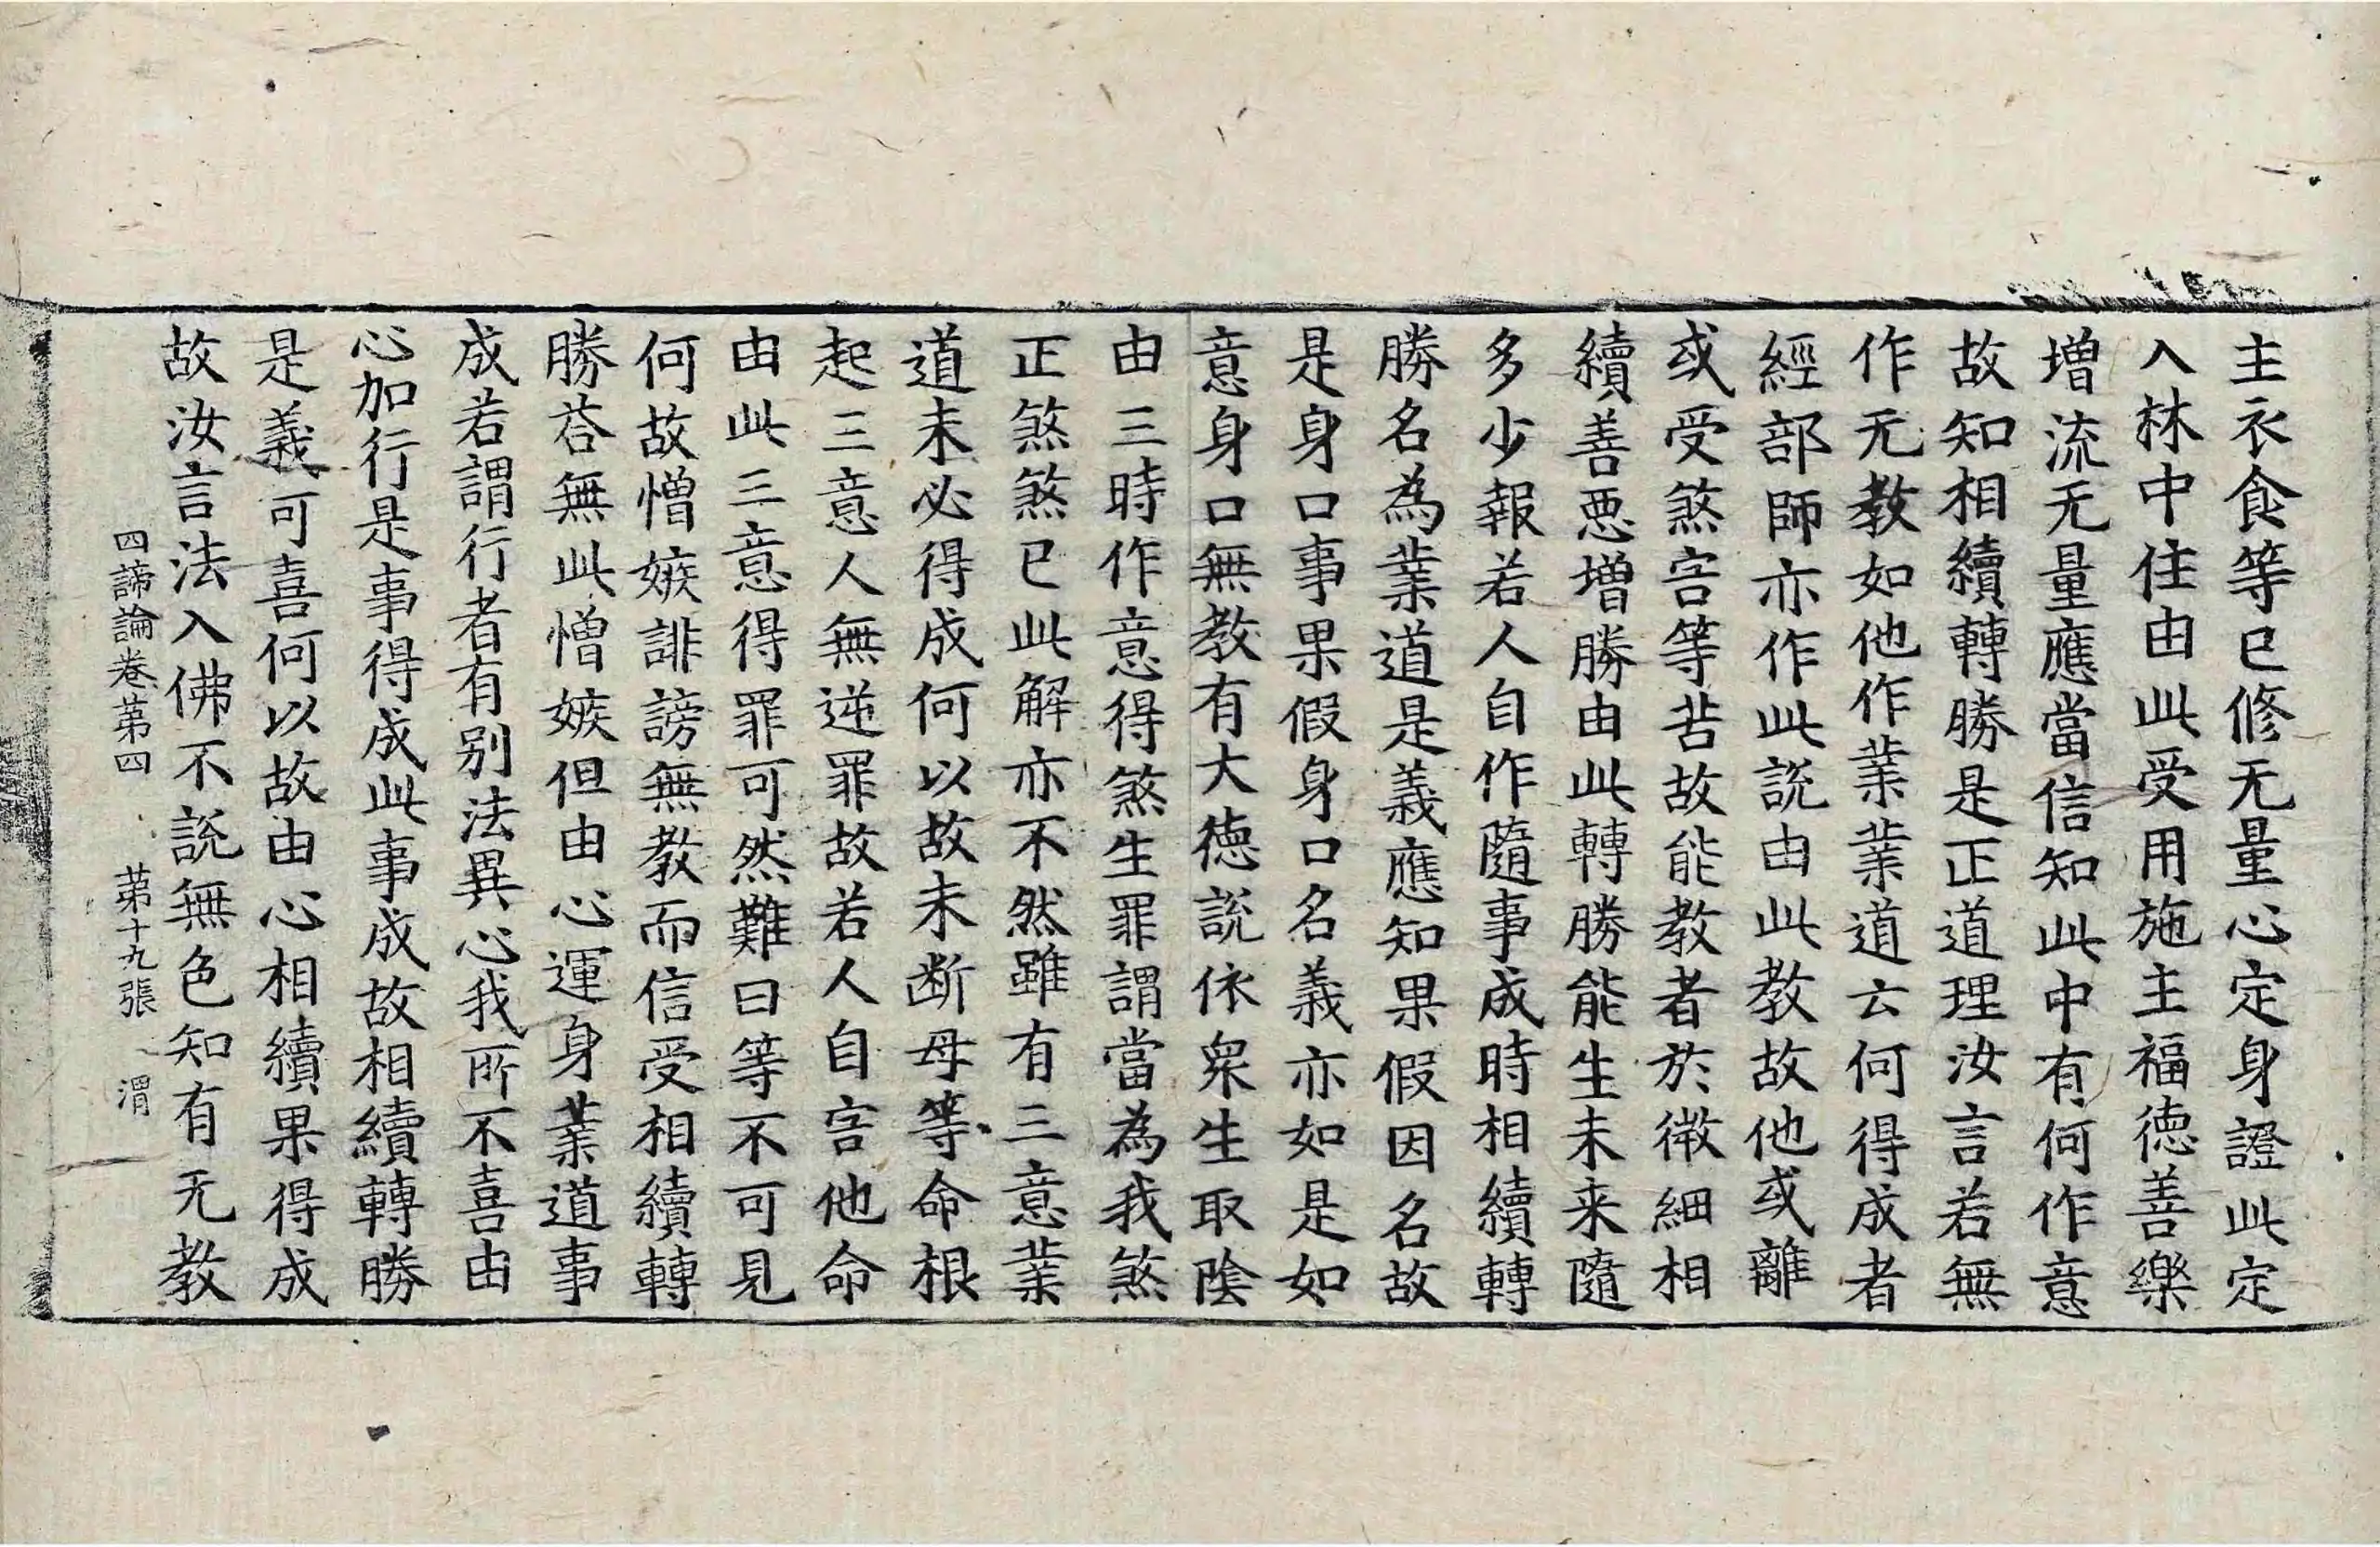 主衣食等已修无量心定身證此定
入林中住由此受用施主福德善樂
增流无量應當信知此中有何作意
故知相續轉勝是正道理汝言若無
作无教如他作業業道云何得成者
經部師亦作此說由此教故他或離
或受煞害等苦故能教者於微細相
續善惡增勝由此轉勝能生未来隨
多少報若人自作隨事成時相續轉
勝名為業道是義應知果假因名故
是身口事果假身口名義亦如是如
意身口無教有大德說依眾生取陰
由三時作意得煞生罪謂當為我煞
正煞煞已此解亦不然雖有三意業
道未必得成何以故未斷母等命根
起三意人無逆罪故若人自害他命
由此三意得罪可然難曰等不可見
何故憎嫉誹謗無教而信受相續轉
勝荅無此憎嫉但由心運身業道事
成若謂行者有別法異心我所不喜由
心加行是事得成此事成故相續轉勝
是義可喜何以故由心相續果得成
故汝言法入佛不說無色知有无教
四諦論卷第四 第十九張 渭